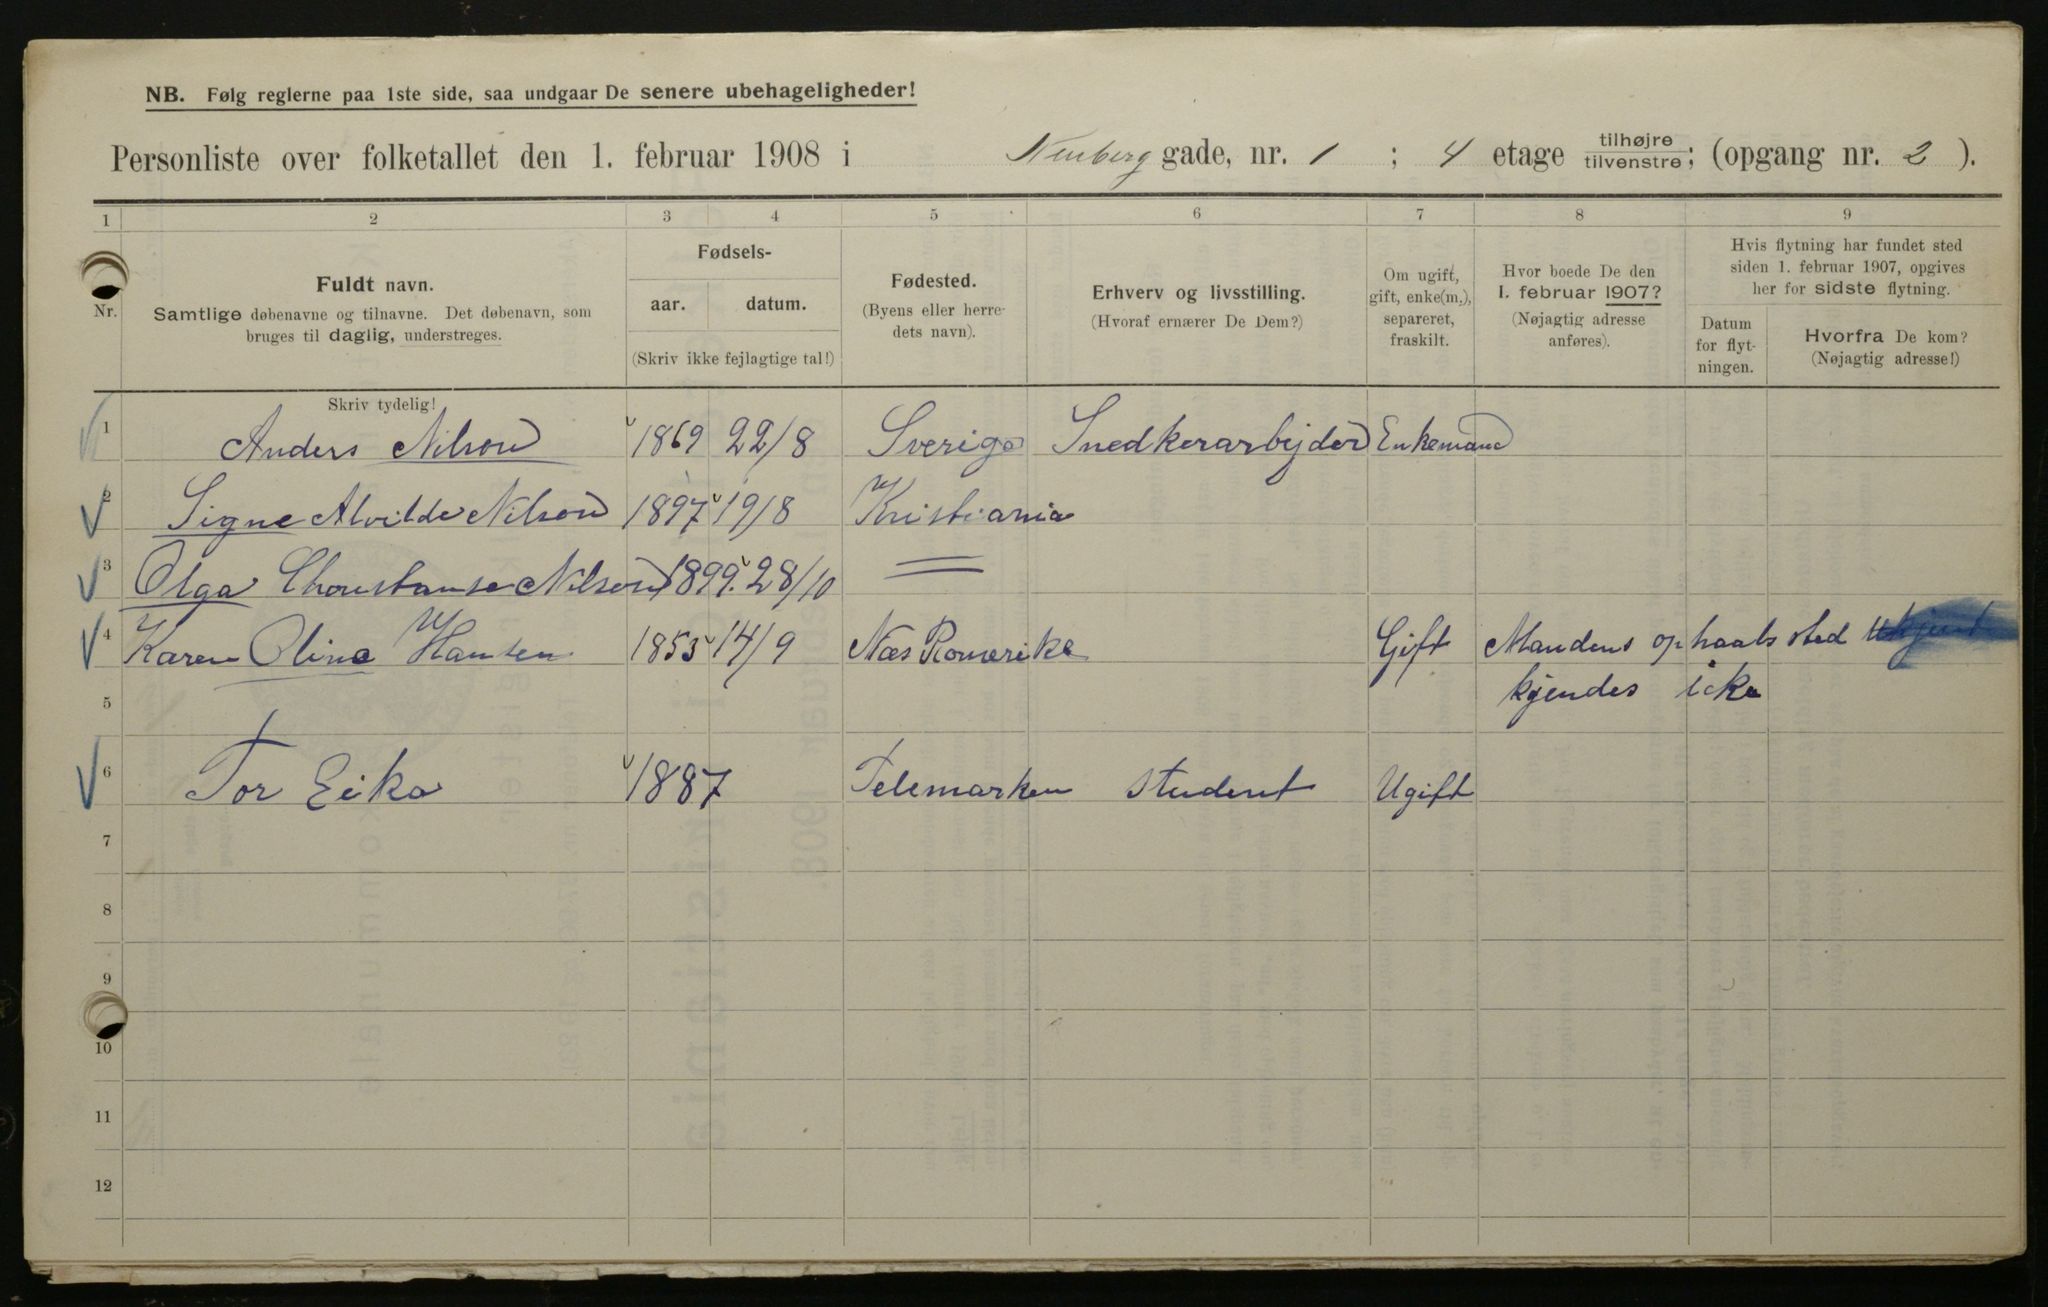 NB. Følg reglerne paa 1ste side, saa undgaar De senere ubehageligheder!
Personliste over folketallet den 1. februar 1908 i Neuberg gade, nr. 1 ; 4 etage tilhøjre / tilvenstre; (opgang nr. 2 ).
1 2 3 4 5 6 7 8 9
Nr.
Fuldt navn.
Samtlige døbenavne og tilnavne. Det døbenavn, som
bruges til daglig, understreges.
Fødsels-
aar. datum.
(Skriv ikke fejlagtige tal!)
Fødested.
(Byens eller herre-
dets navn).
Erhverv og livsstilling.
(Hvoraf ernærer De Dem?)
Om ugift,
gift, enke(m.),
separeret,
fraskilt.
Hvor boede De den
1. februar 1907?
(Nøjagtig adresse
anføres).
Hvis flytning har fundet sted
siden 1. februar 1907, opgives
her for sidste flytning.
Datum
for flyt-
ningen.
Hvorfra De kom?
(Nøjagtig adresse!)
Skriv tydelig!
1 Anders Nilson 1869 22/8 Sverige Snedkerarbejder Enkemand
2 Signe Alvilde Nilson 1897 19/8 Kristiania
3 Olga Chonstanse Nilson 1899. 28/10 =
4 Karen Oline Hansen 1853 14/9 Næs Romerike Gift Mandens ophaabssted ukjent
5 kjendes icke
6 Tor Eika 1887 Telemarken student Ugift
7
8
9
10
11
12